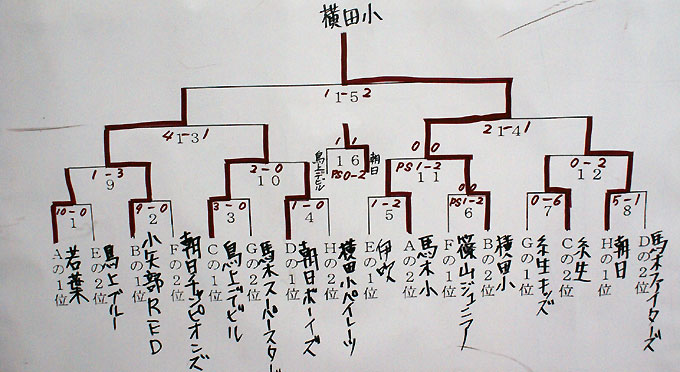 横田小
1 - 5 2
15
4 - 1
13
2 - 1
14
1 1
16
PS 0-2
鳥上デビル
朝日
1 - 3
9
2 - 0
10
0 0
PS 1-2
11
0 - 2
12
10 - 0
1
9 - 0
2
3 - 0
3
1 - 0
4
1 - 2
5
0 0
PS1-2
6
0 - 6
7
5 - 1
8
Aの1位 若葉
Eの2位 鳥上ブルー
Bの1位 小矢部RED
Fの2位 朝日チャンピオンズ
Cの1位 鳥上デビル
Gの2位 馬木スーパースター
Dの1位 朝日ボーイズ
Hの2位 横田小パイレーツ
Eの1位 伊吹
Aの2位 馬木小
Fの1位 篠山ジュニアー
Bの2位 横田小
Gの1位 糸生キッズ
Cの2位 糸生
Hの1位 朝日
Dの2位 馬木ファイターズ